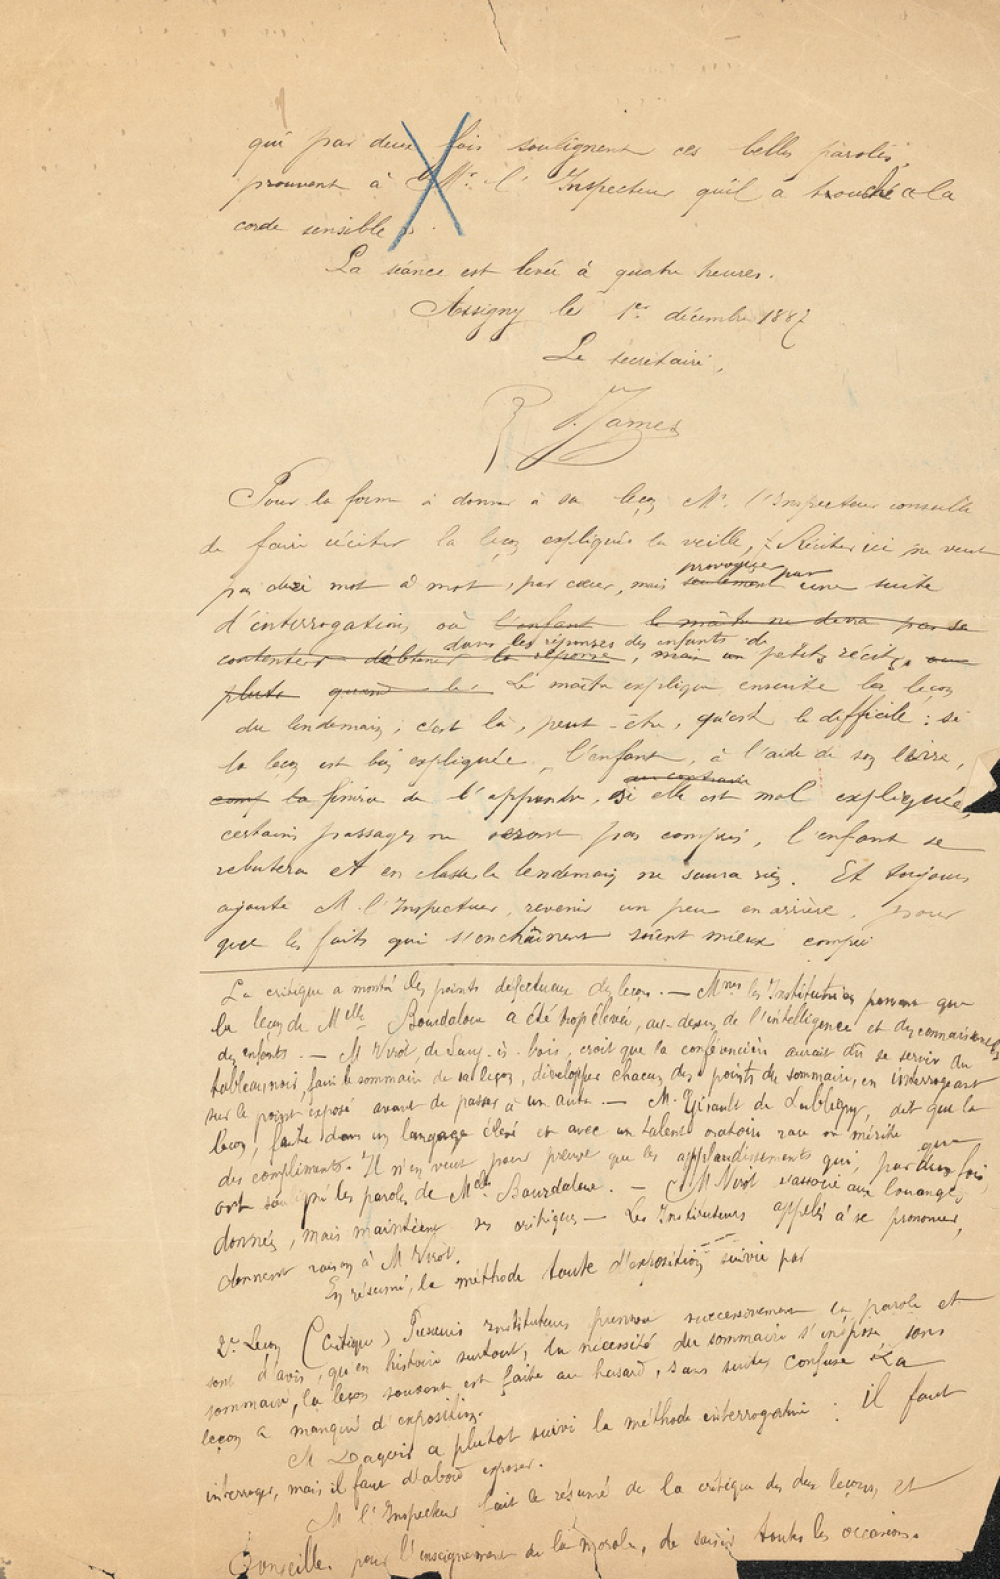 qui par deux fois soulignent ces belles paroles,
prouvent à Mr. l'Inspecteur qu'il a touché la
corde sensible ».
La séance est levée à quatre heures.
Assigny le 1er décembre 1887
Le secrétaire,
P. James
Pour la forme à donner à sa leçon Mr. l'Inspecteur conseille
de faire réciter la leçon expliquée la veille, Réciter ici ne veut
provoquer par
pas dire mot à mot, par cœur, mais seulement une suite
d'interrogations où l'enfant le maître ne devra pas se
dans les réponses des enfants de
contenter d'obtenir la réponse, mais un petits récits, ou
plutôt quand le Le maître explique ensuite la leçon
du lendemain, c'est là, peut-être, qu'est le difficile : si
la leçon est bien expliquée, l'enfant, à l'aide de son livre,
au contraire
finira de l'apprendre, si elle est mal expliquée,
certains passages ne seront pas compris, l'enfant se
rebutera et en classe le lendemain ne saura rien. Et toujours
ajoute M. l'Inspecteur, revenir un peu en arrière, pour
que les faits qui s'enchaînent soient mieux compris
La critique a montré les points défectueux des leçons. — Mmes les Institutrices pensent que
la leçon de Melle Bourdaloue a été trop élevée, au-dessus de l'intelligence et des connaissances
des enfants. — M Virot, de Sury-ès-bois, croit que la conférencière aurait dû se servir du
tableau noir, faire le sommaire de sa leçon, développer chacun des points du sommaire, en interrogeant
sur le point exposé avant de passer à un autre. — M. Girault de Subligny, dit que la
leçon, faite dans un langage élevé et avec un talent oratoire rare on mérite que
des compliments. Il n'en veut pour preuve que les applaudissements qui, par deux fois,
ont souligné les paroles de Melle Bourdaloue. — M Virot s'associe aux louanges
données, mais maintient ses critiques — Les Instituteurs appelés à se prononcer,
donnent raison à M Virot.
En résumé, la méthode toute d'exposition suivie par
2e Leçon (Critique) Plusieurs instituteurs prennent successivement la parole et
sont d'avis, qu'en histoire surtout, la nécessité du sommaire s'impose, sans
sommaire, la leçon souvent est faite au hasard, sans suite, confuse La
leçon a manqué d'exposition.
M a plutôt suivi la méthode interrogative : il faut
interroger, mais il faut d'abord exposer.
M l'Inspecteur fait le résumé de la critique des deux leçons, et
Conseille pour l'enseignement de la morale, de saisir toutes les occasions.